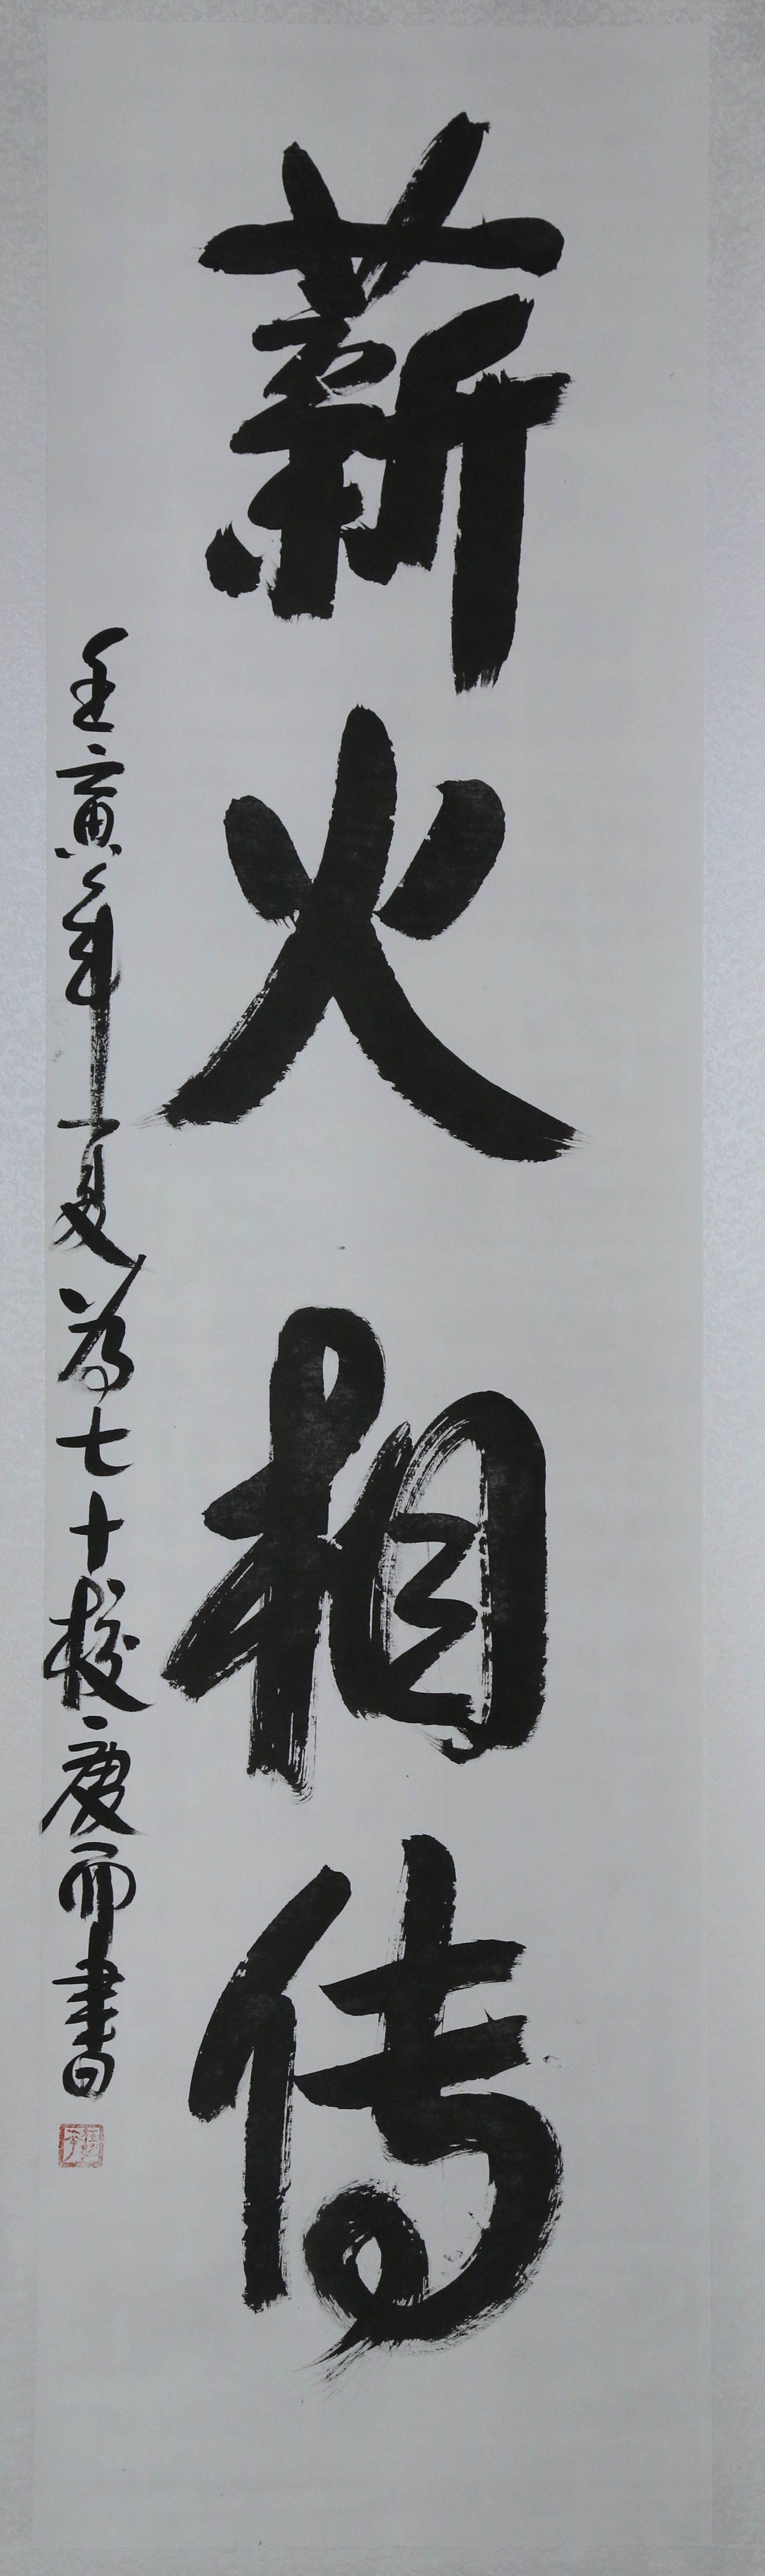 薪火相传
壬寅年夏为七十校庆而書